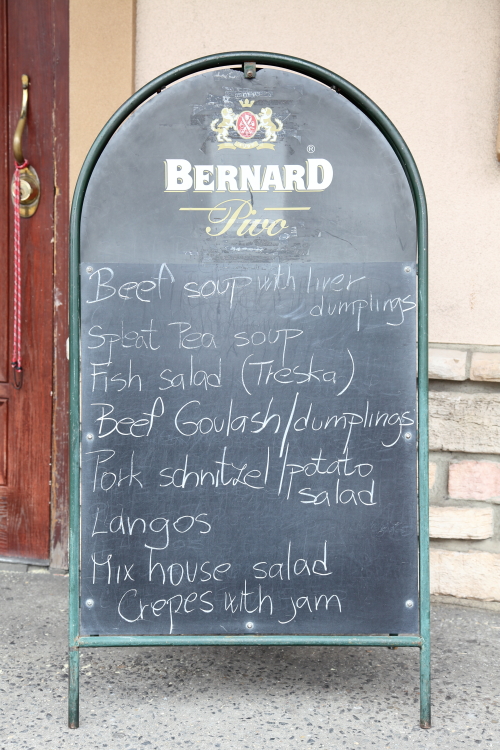 BERNARD ®
Pivo
Beef soup with liver
dumplings
Spleat Pea soup
Fish salad (Treska)
Beef Goulash/dumplings
Pork schnitzel/potato
salad
Langos
Mix house salad
Crepes with jam